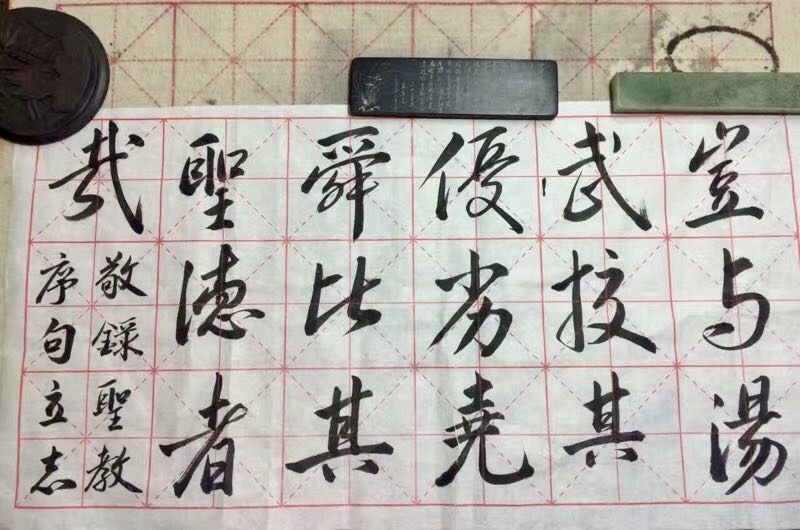 豈与湯
武挍其
優劣堯
舜比其
聖德者
哉
敬錄聖教
序句立志